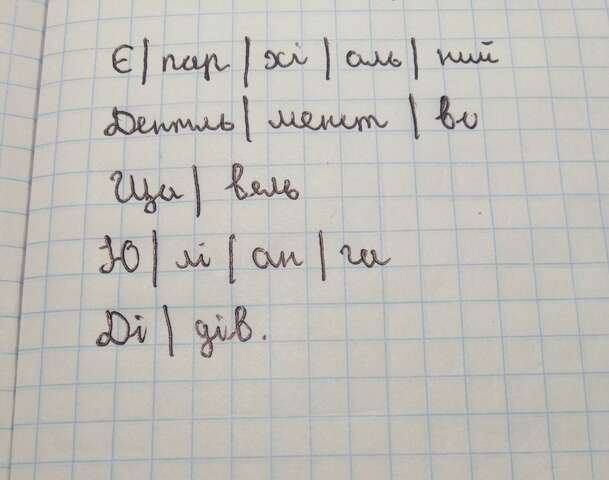 Є | пар | хі | аль | ний
Дентль | менст | во
Ща | вель
Ю | лі | ан | га
Ді | дів.